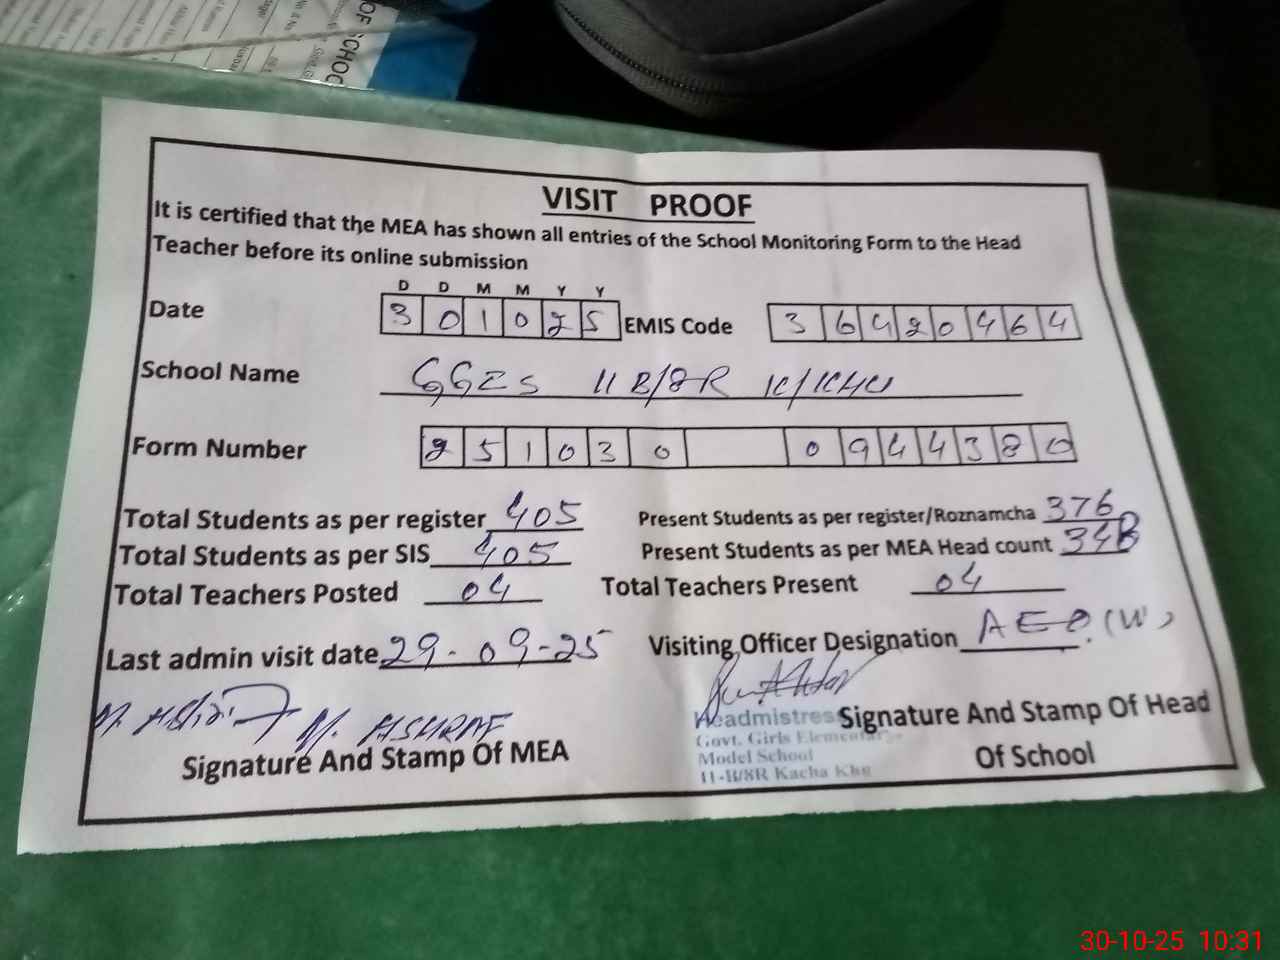 OF SCHOO
VISIT PROOF
It is certified that the MEA has shown all entries of the School Monitoring Form to the Head
Teacher before its online submission
D D M M Y Y
Date 3 0 1 0 2 5 EMIS Code 3 6 4 2 0 4 6 4
School Name GGES 11 B/8R K/KHU
Form Number 2 5 1 0 3 0 0 9 4 4 3 8 0
Total Students as per register 405 Present Students as per register/Roznamcha 376
Total Students as per SIS 405 Present Students as per MEA Head count 348
Total Teachers Posted 04 Total Teachers Present 04
Last admin visit date 29-09-25 Visiting Officer Designation AEO (W)
M. ASHRAF
Signature And Stamp Of MEA
Headmistress
Govt. Girls Elementary
Model School
11-B/8R Kacha Khu
Signature And Stamp Of Head
Of School
30-10-25 10:31